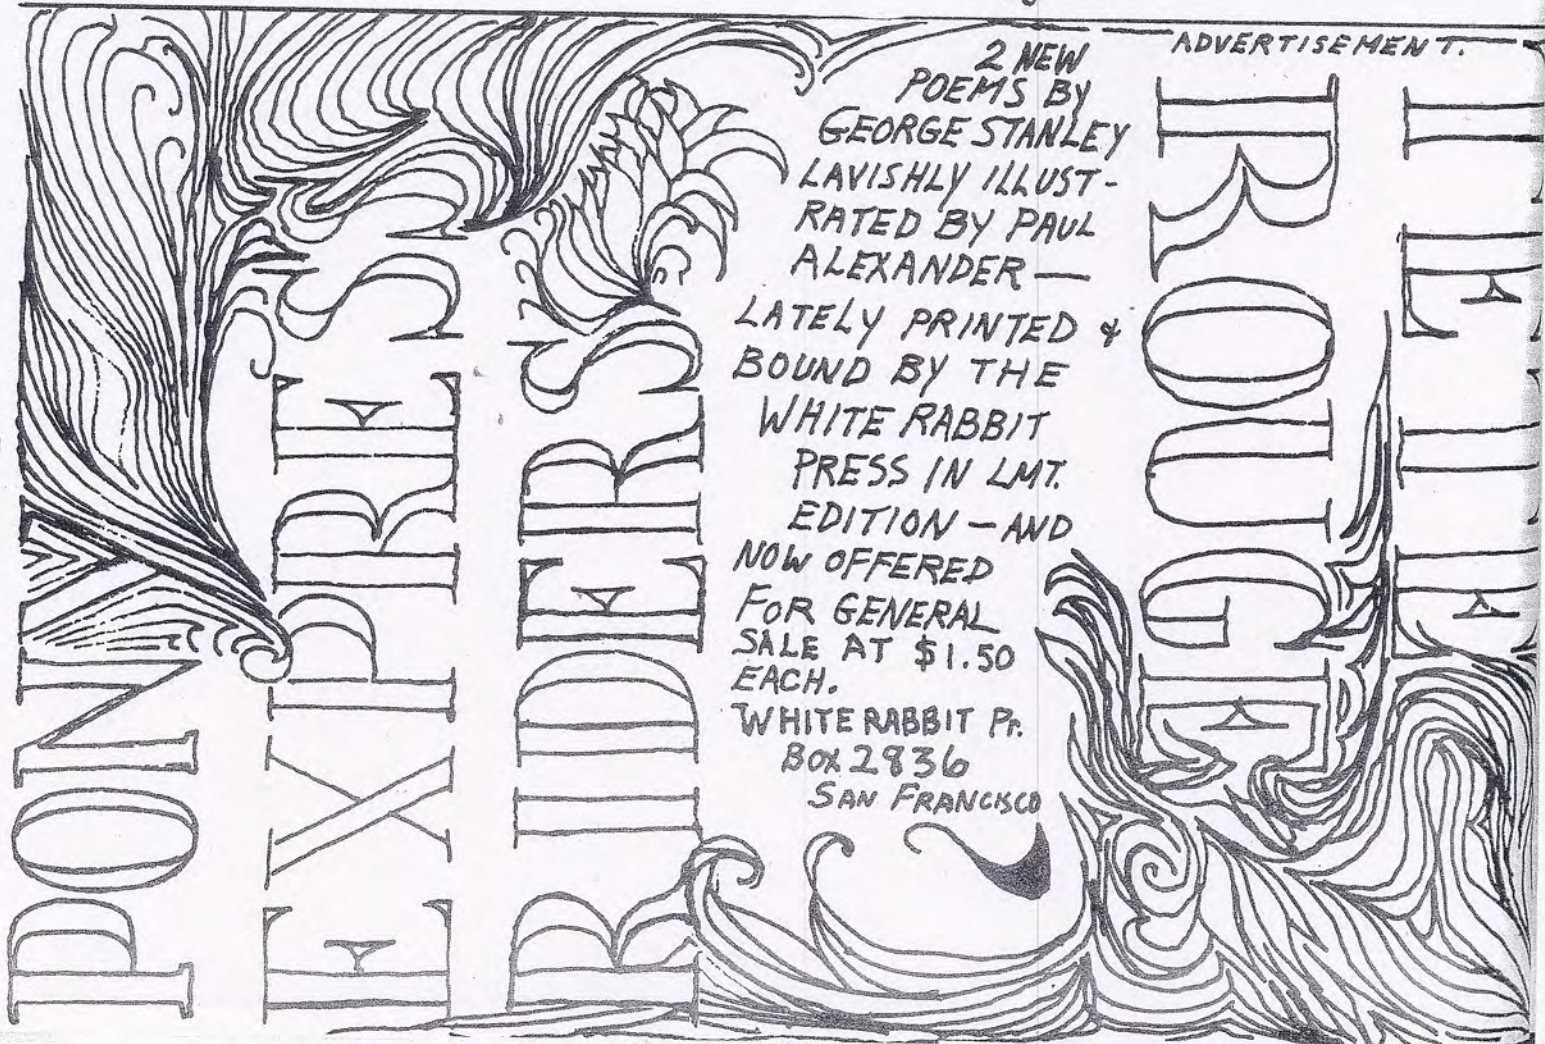 ADVERTISEMENT.
PONY
EXPRESS
RIDERS
2 NEW
POEMS BY
GEORGE STANLEY
LAVISHLY ILLUST-
RATED BY PAUL
ALEXANDER —
LATELY PRINTED &
BOUND BY THE
WHITE RABBIT
PRESS IN LMT.
EDITION — AND
NOW OFFERED
FOR GENERAL
SALE AT $1.50
EACH.
WHITE RABBIT Pr.
BOX 2836
SAN FRANCISCO
TETE
ROUGE